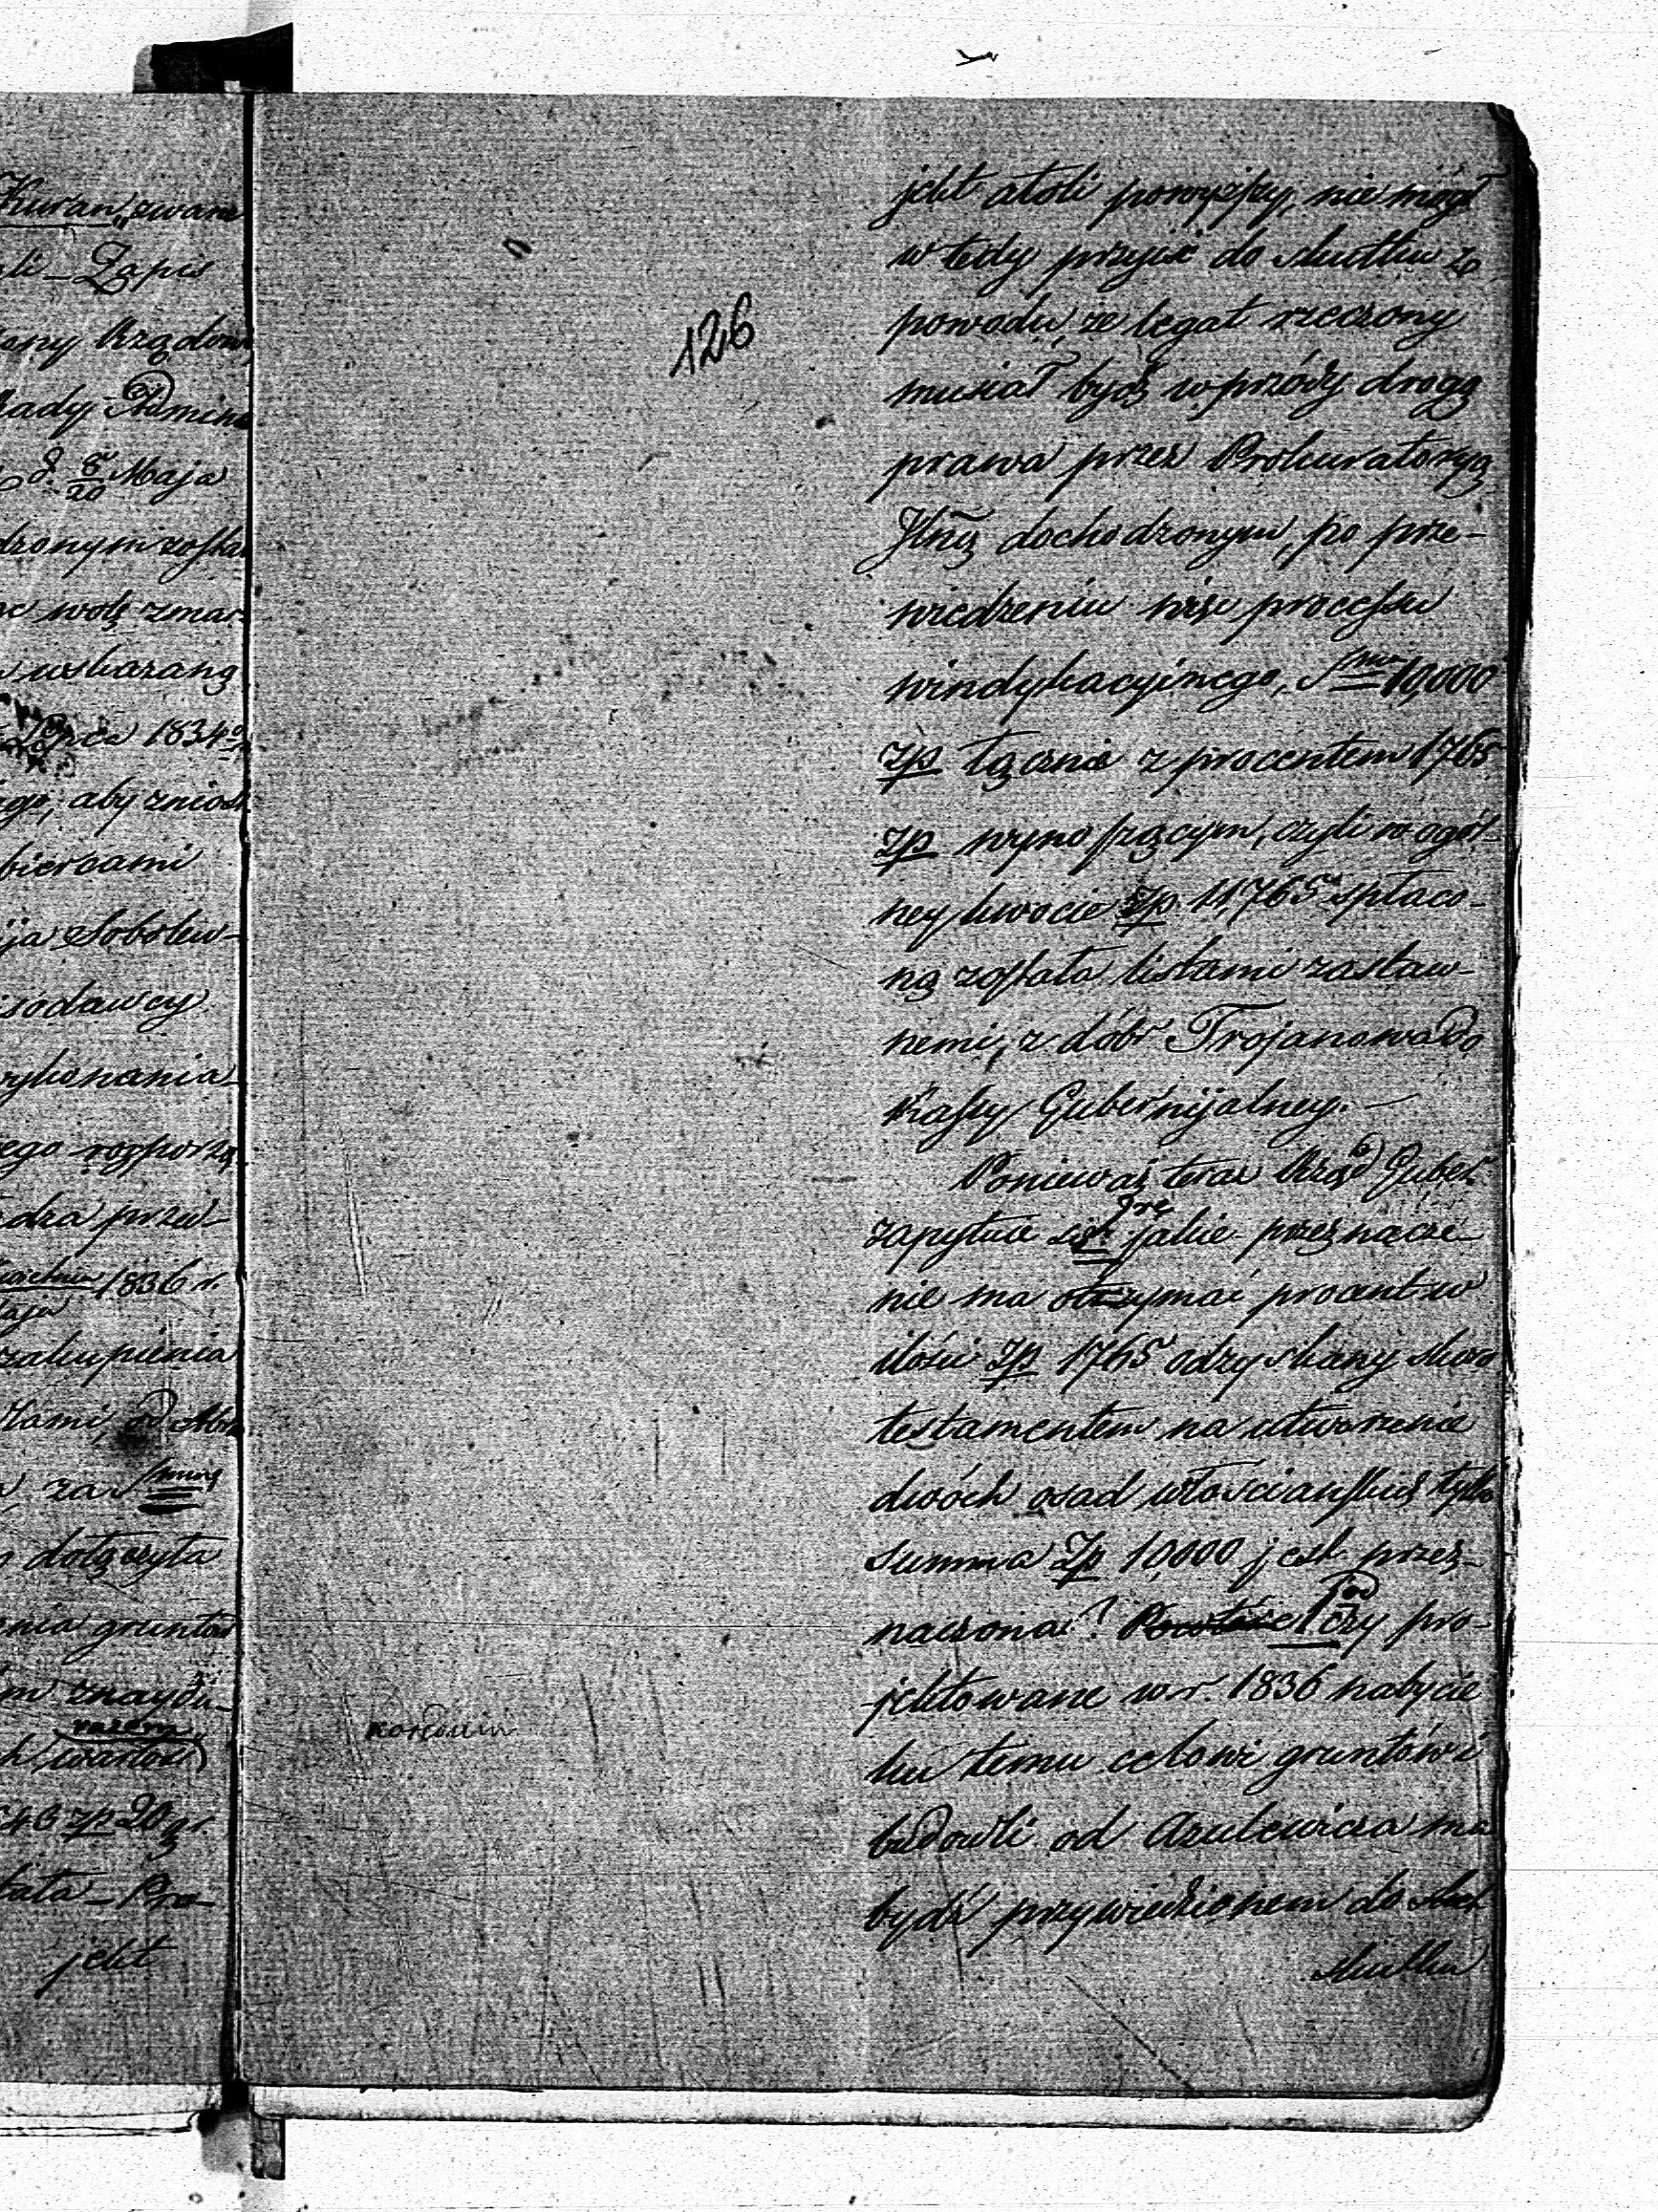 Kuran„ zwane
li – Zapis
any Rządow
Rady Admini
d. 8/20 Maja
dzonym zosta
wolą zmar-
wskazaną
Lipca 1834
go, aby zniosł
biercami
ja Sobolew-
isodawcy
wykonania
ego rozporzą
dza przed-
1836 r.
zakupienia
łami, od Abr
za Summę
dołączyła
nia gruntów
m znaydu-
razem
wartow
zp 20 gr
tała – Pro-
jekt
126
korduin
jekt atoli powyższy, nie mógł
w tedy przyiść do skutku z
powodu, że legat rzeczony
musiał bydź w przódy drogą
prawa przez Prokuratoryą
Jlną dochodzonym, po prze-
wiedzeniu więc processu
windykacyinego, Sma 10,000
zp łącznie z procentem 1765
zp wynoszącym, czyli w ogól-
ney kwocie zp. 11,765 spłaco-
ną została listami zastaw-
nemi, z dóbr Trojanowa do
Kassy Gubernijalney. –
Ponieważ teraz Rząd Guber
zapytuie się jakie przeznacze-
nie ma otrzymać procent w
ilości zp 1765 odzyskany skoro
testamentem na utworzenie
dwóch osad włościańskich tylko
summa Zp 10,000 jest prze-
znaczona? czy pro-
jektowane w r. 1836 nabycie
ku temu celowi gruntów i
budowli od Azulewicza ma
bydź przywiedzionem do skut
skutku